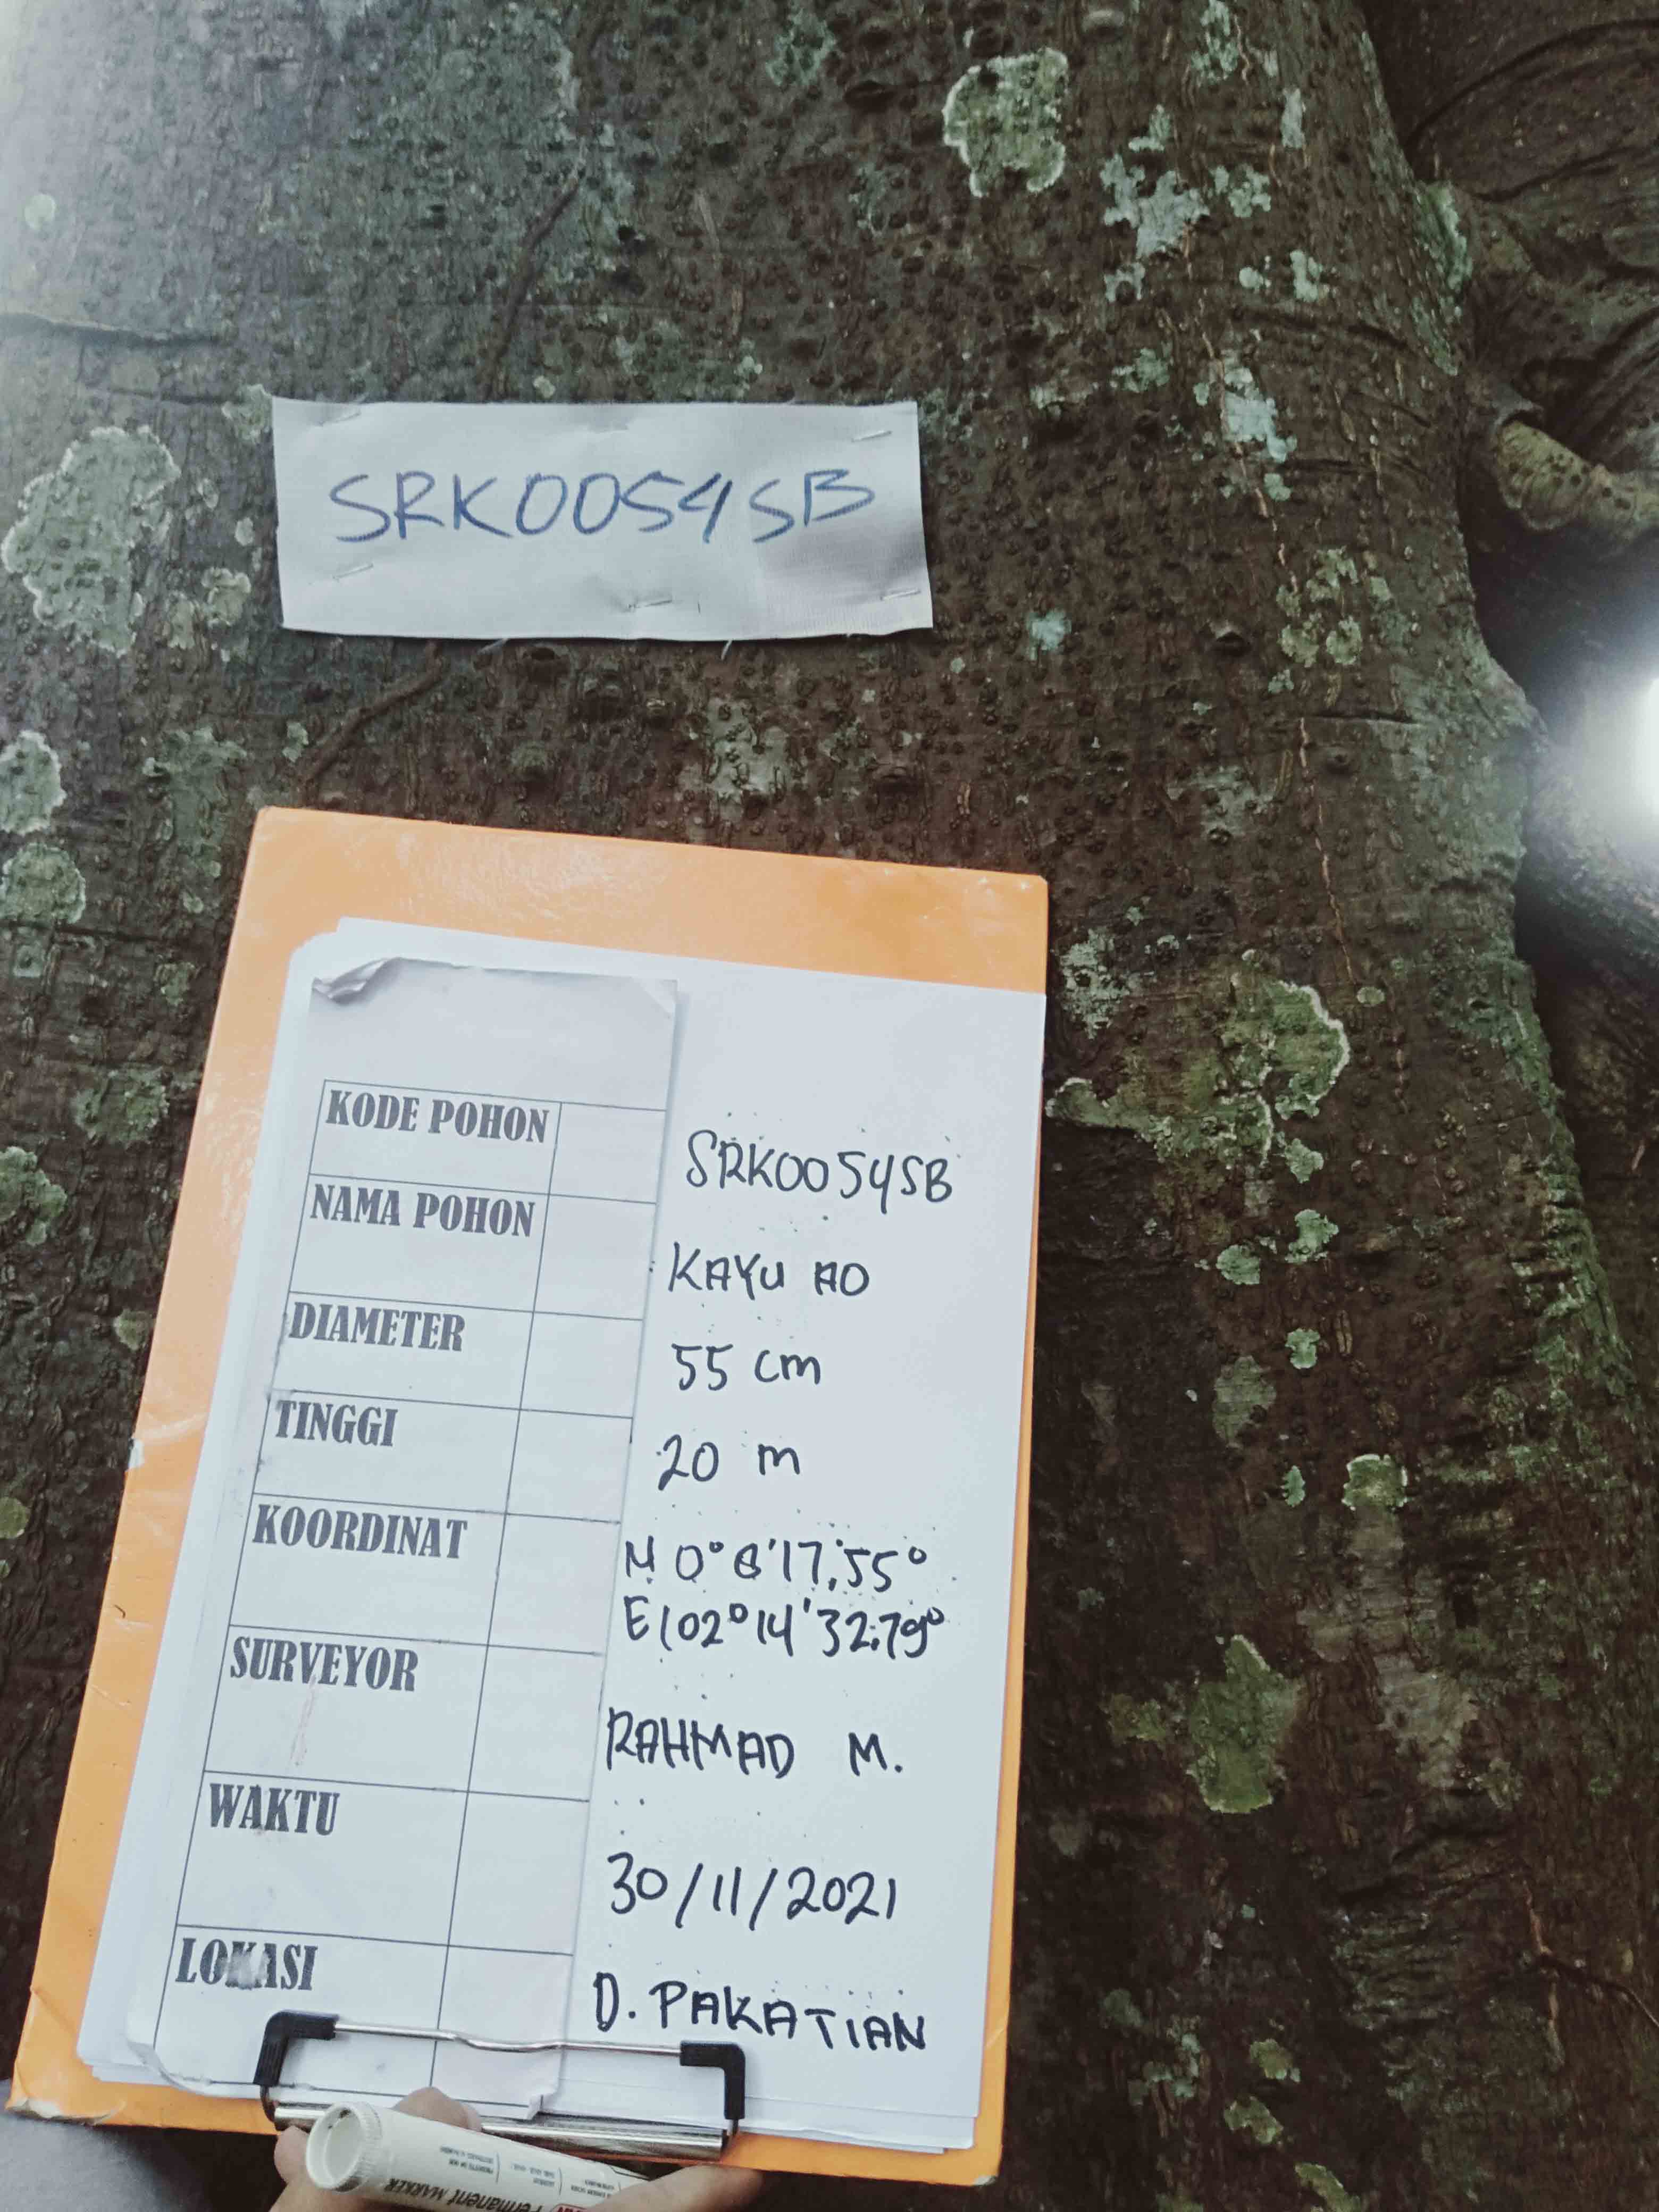 SRK0054SB
KODE POHON SRK0054SB
NAMA POHON KAYU AO
DIAMETER 55 cm
TINGGI 20 m
KOORDINAT N 0°6'17,55°
E102°14'32,79°
SURVEYOR RAHMAD M.
WAKTU 30/11/2021
LOKASI D. PAKATIAN
PERMANENT MARKER